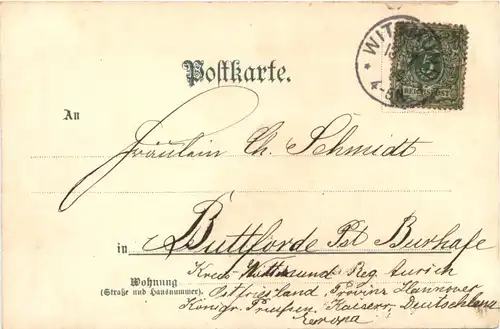 WIT
5
REICHSPOST
Postkarte.
An
Fräulein Ch. Schmidt
in Buttforde Pst Burhafe
Wohnung
(Straße und Hausnummer).
Kreis Wittmund Reg. Aurich
Ostfriesland Provinz Hannover
Königr. Preußen, Kaiserr. Deutschland
Europa